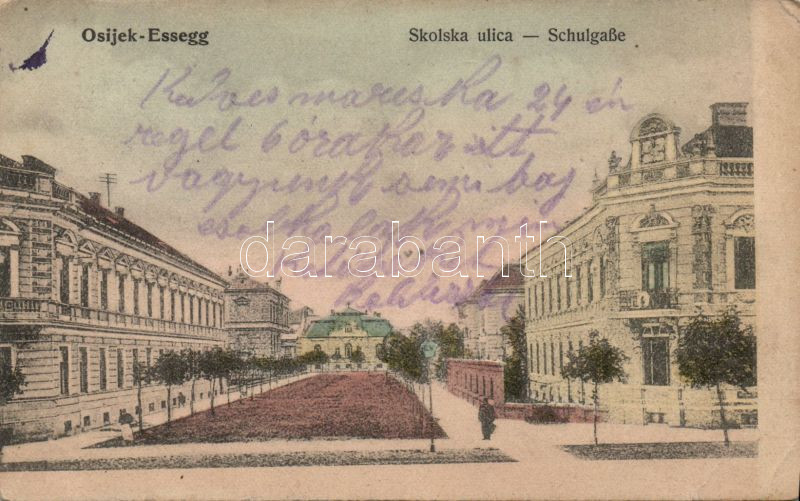 Osijek-Essegg
Skolska ulica — Schulgaße
Kedves mariska 24 én
regel 6 órakor itt
vagyunk semi baj
csak a
darabanth.com